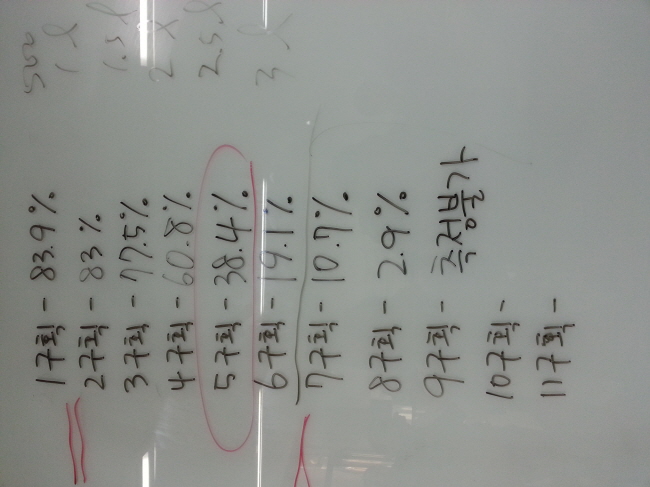 1구획 - 83.9% 500
1 l
2구획 - 83%
1.5 l
3구획 - 77.5%
2 l
4구획 - 60.8%
2.5 l
5구획 - 38.4%
6구획 - 19.1% 3 l
7구획 - 10.7%
8구획 - 2.9%
9구획 - 측정불가
10구획 -
11구획 -